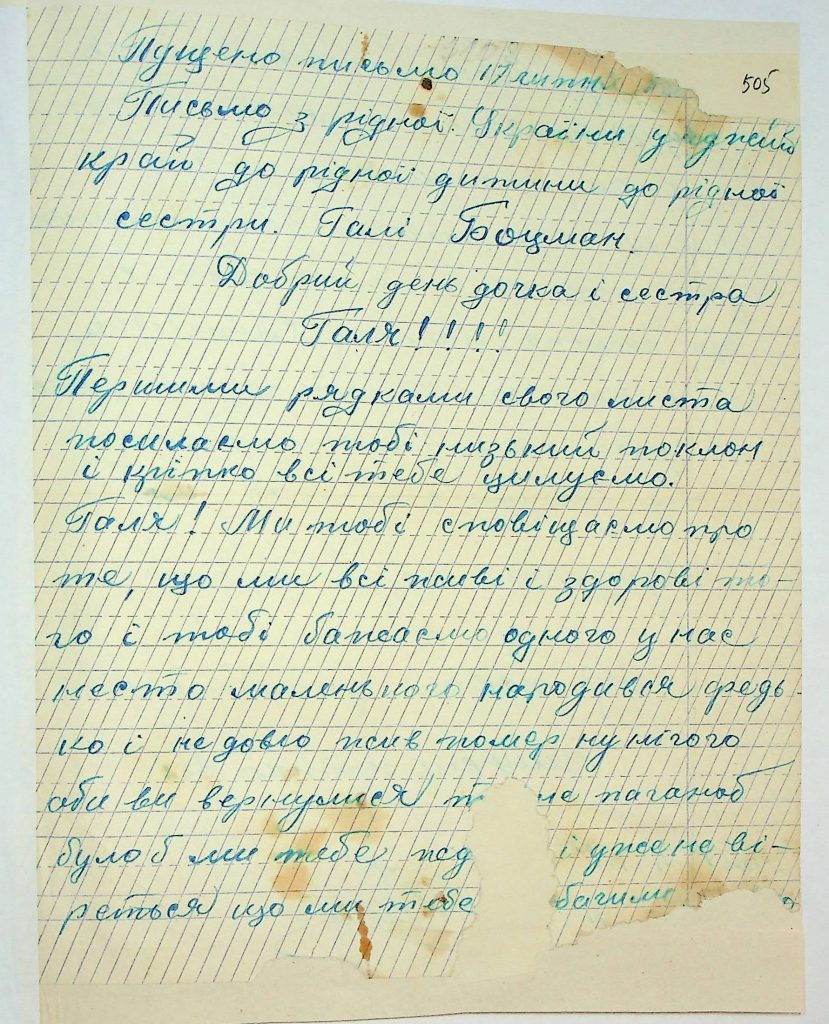 505
Пущено письмо 17 липня
Письмо з рідної України у чужий
край до рідної дитини до рідної
сестри. Галі Боцман.
Добрий день дочка і сестра
Галя!!!!
Першими рядками свого листа
посилаємо тобі низький поклон
і кріпко всі тебе цилуємо.
Галя! Ми тобі сповіщаємо про
те, що ми всі живі і здорові то-
го і тобі бажаємо одного у нас
нєсто маленького народився федь-
ко і не довго жив помер ну нічого
аби ви вернулися не паганоб
було б ми тебе і уже не ві-
рється що ми тебе бачимо